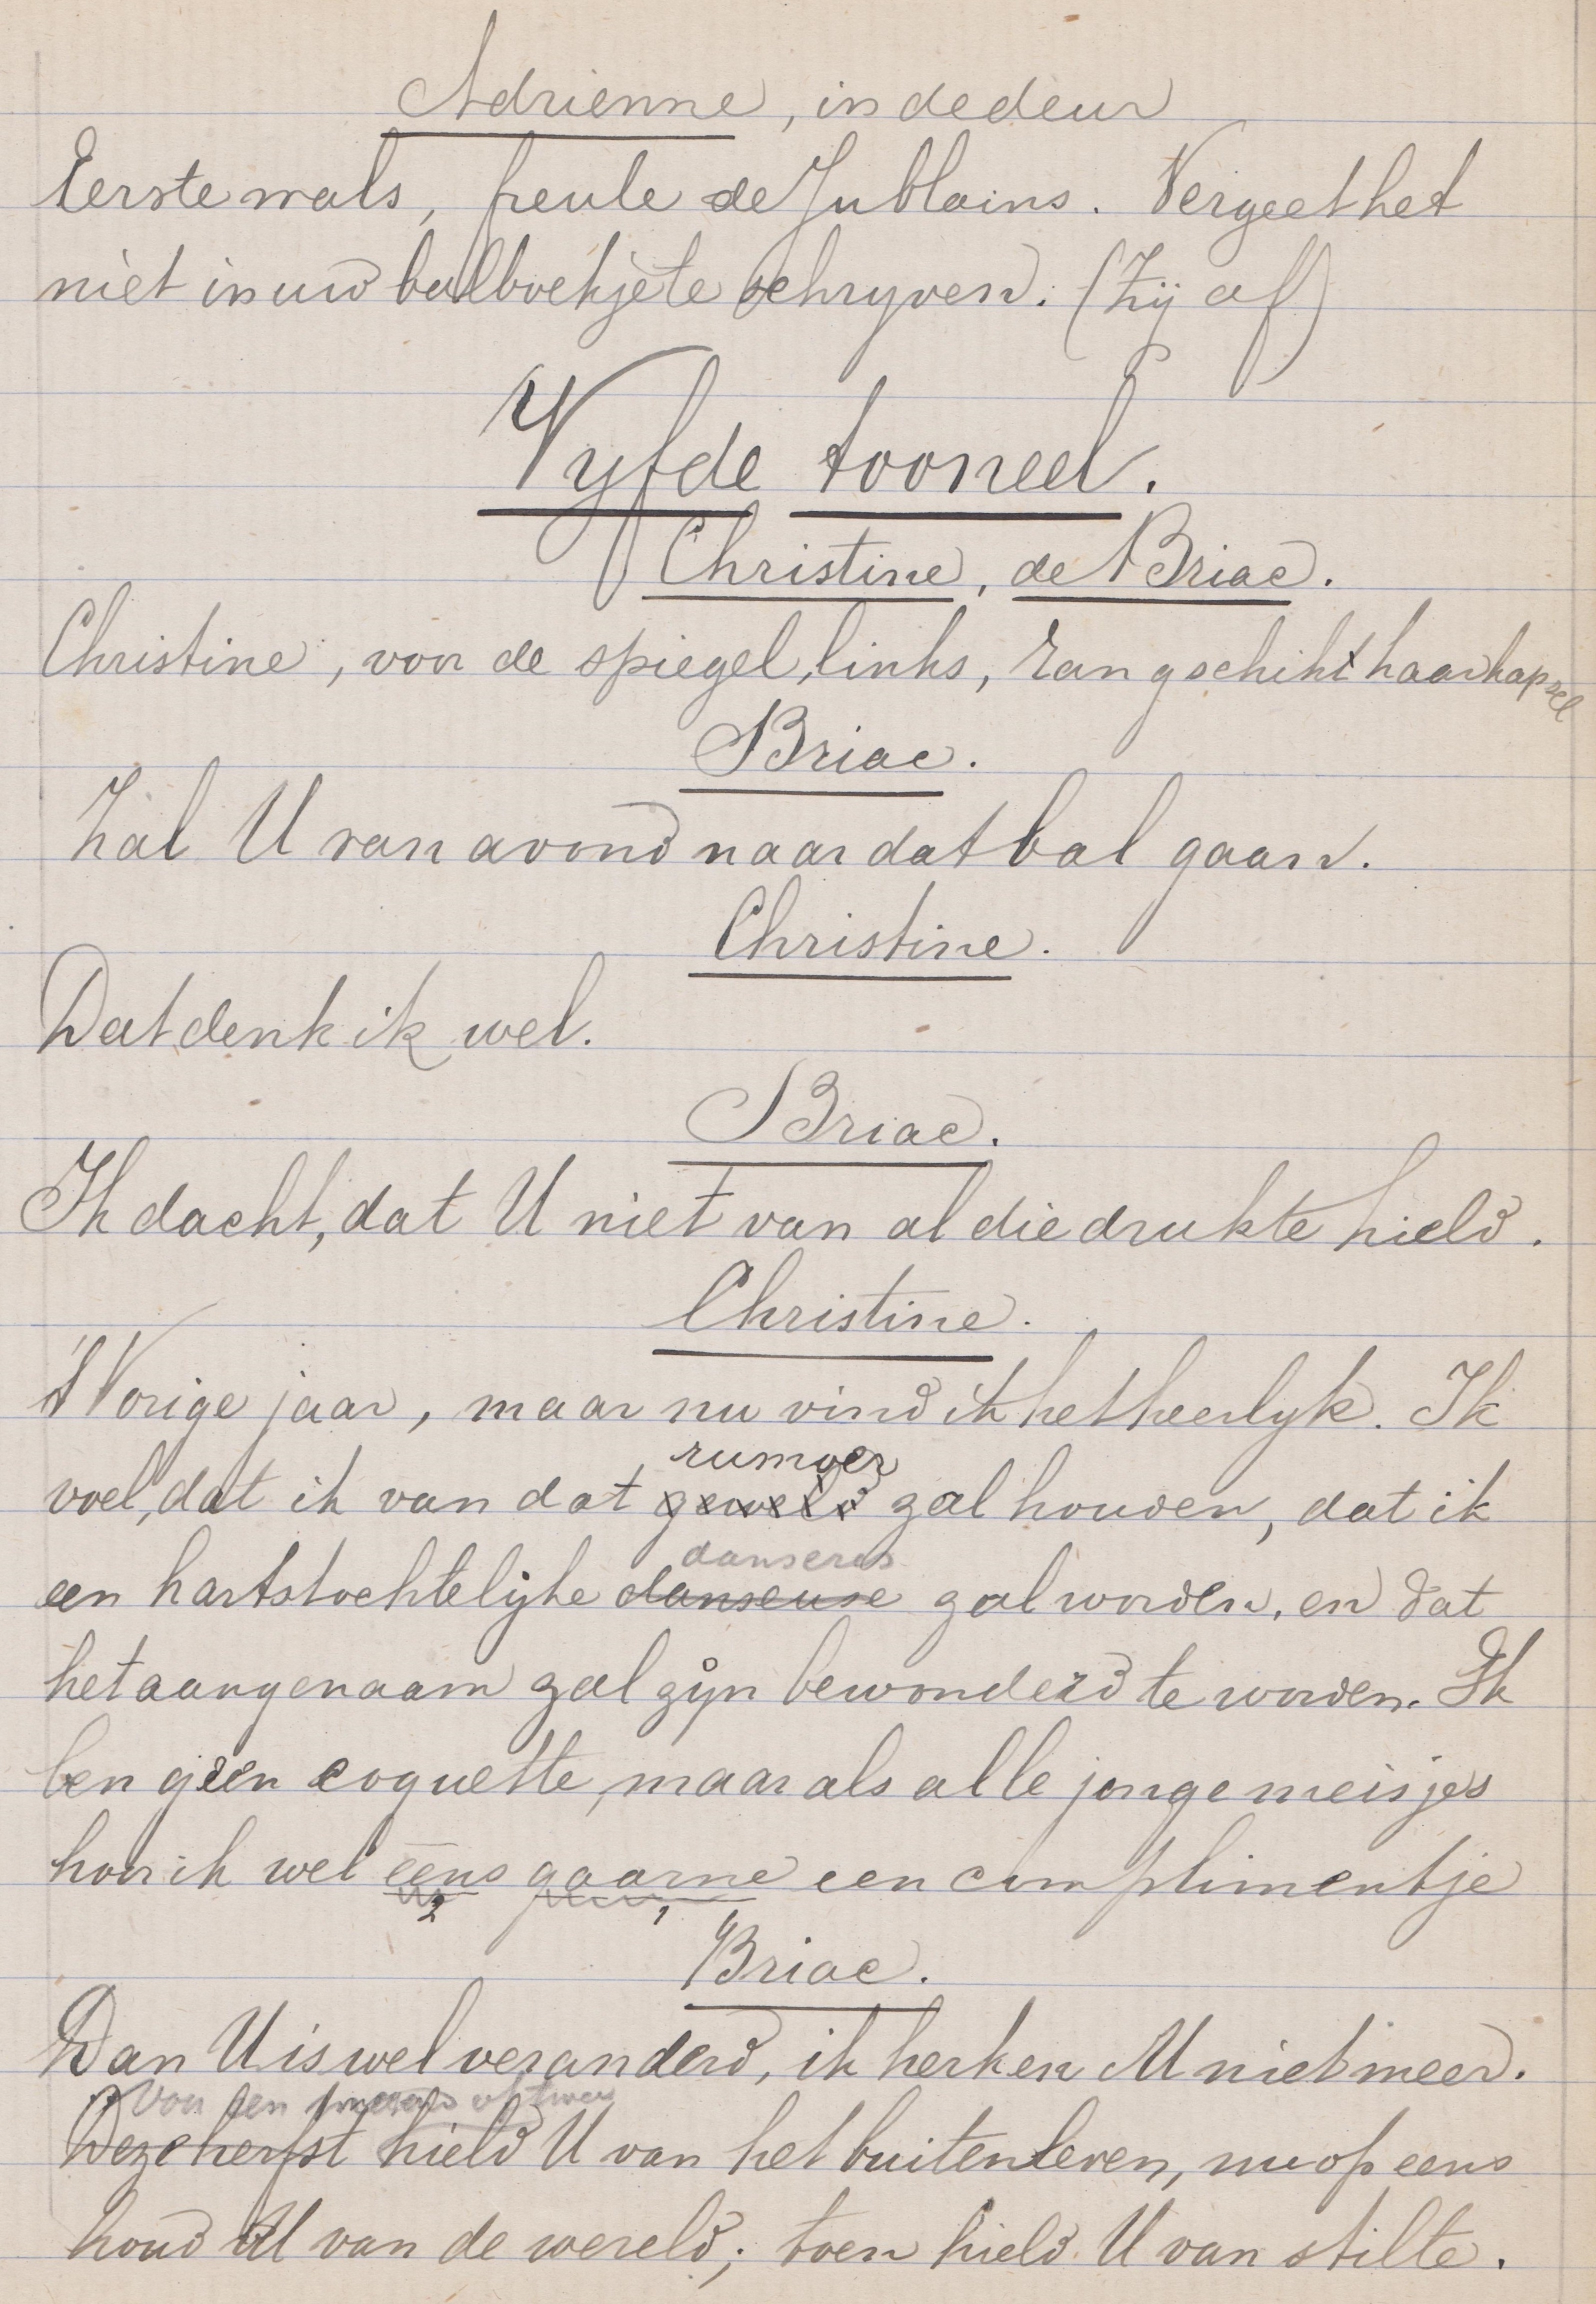 Adrienne, in de deur
Eerste wals, freule de Jublains. Vergeet het
niet in uw balboekje te schryven. (Zij af)
Vyfde tooneel.
Christine, de Briac.
Christine, voor de spiegel, links, rangschikt haar kapsel
Briac.
Zal U van avond naar dat bal gaan.
Christine.
Dat denk ik wel.
Briac.
Ik dacht, dat U niet van al die drukte hield.
Christine.
't Vorige jaar, maar nu vind ik het heerlyk. Ik
rumoer
voel, dat ik van dat geweld zal houden, dat ik
danseres
een hartstochtelijke danseuse zal worden, en dat
het aangenaam zal zijn bewonderd te worden. Ik
ben geen coquette, maar als alle jonge meisjes
hoor ik wel eens gaarne een complimentje
2 1
Briac.
Dan U is wel veranderd, ik herken U niet meer.
Voor een
Deze herfst hield U van het buitenleven, nu op eens
houd U van de wereld; toen hield U van stilte.